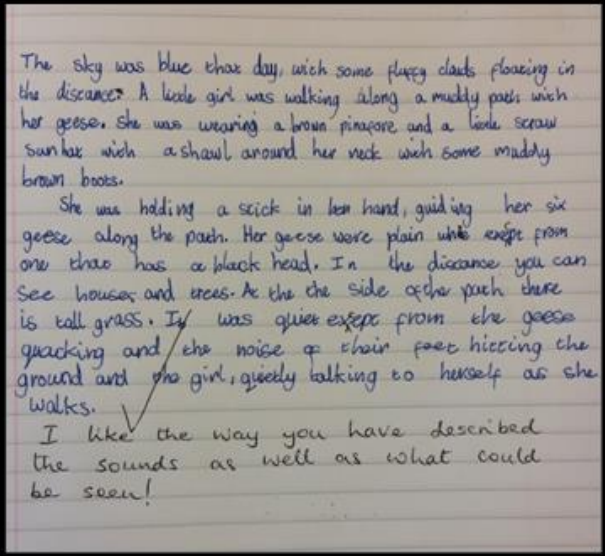 The sky was blue that day, with some fluffy clouds floating in
the distance. A little girl was walking along a muddy path with
her geese. She was wearing a brown pinafore and a little straw
sunhat with a shawl around her neck with some muddy
brown boots.
She was holding a stick in her hand, guiding her six
geese along the path. Her geese were plain white exept from
one that has a black head. In the distance you can
see houses and trees. At the the side of the path there
is tall grass. It was quiet exsept from the geese
quacking and the noise of their feet hitting the
ground and the girl, quietly talking to herself as she
walks.
I like the way you have described
the sounds as well as what could
be seen!